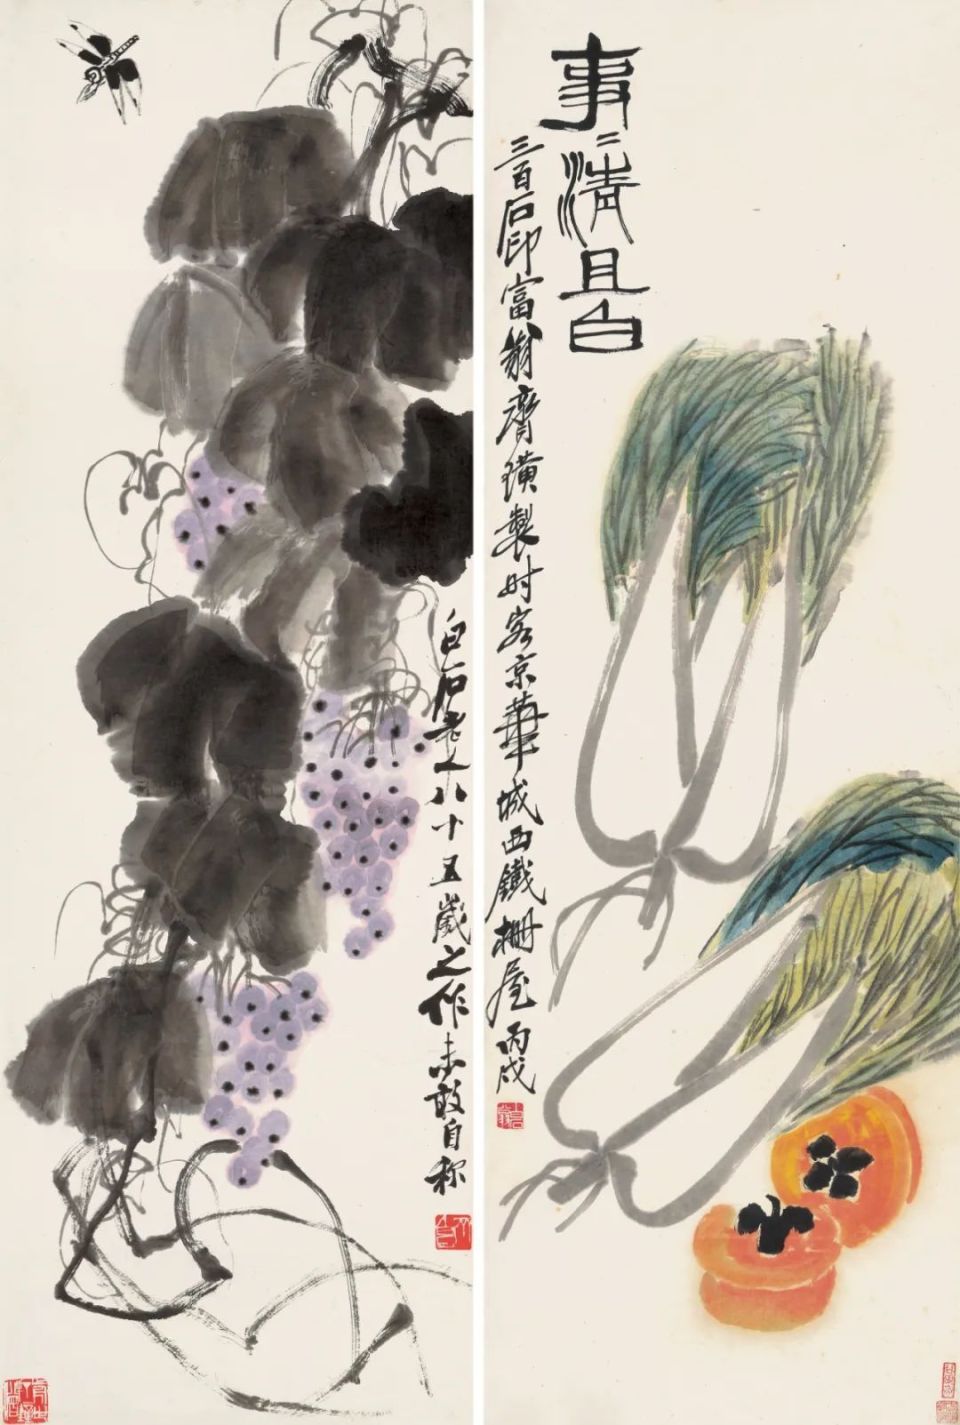 事〻清且白
三百石印富翁齊璜製时客京華城西鐵栅屋丙戌
白石老人八十五歲之作未敢自称